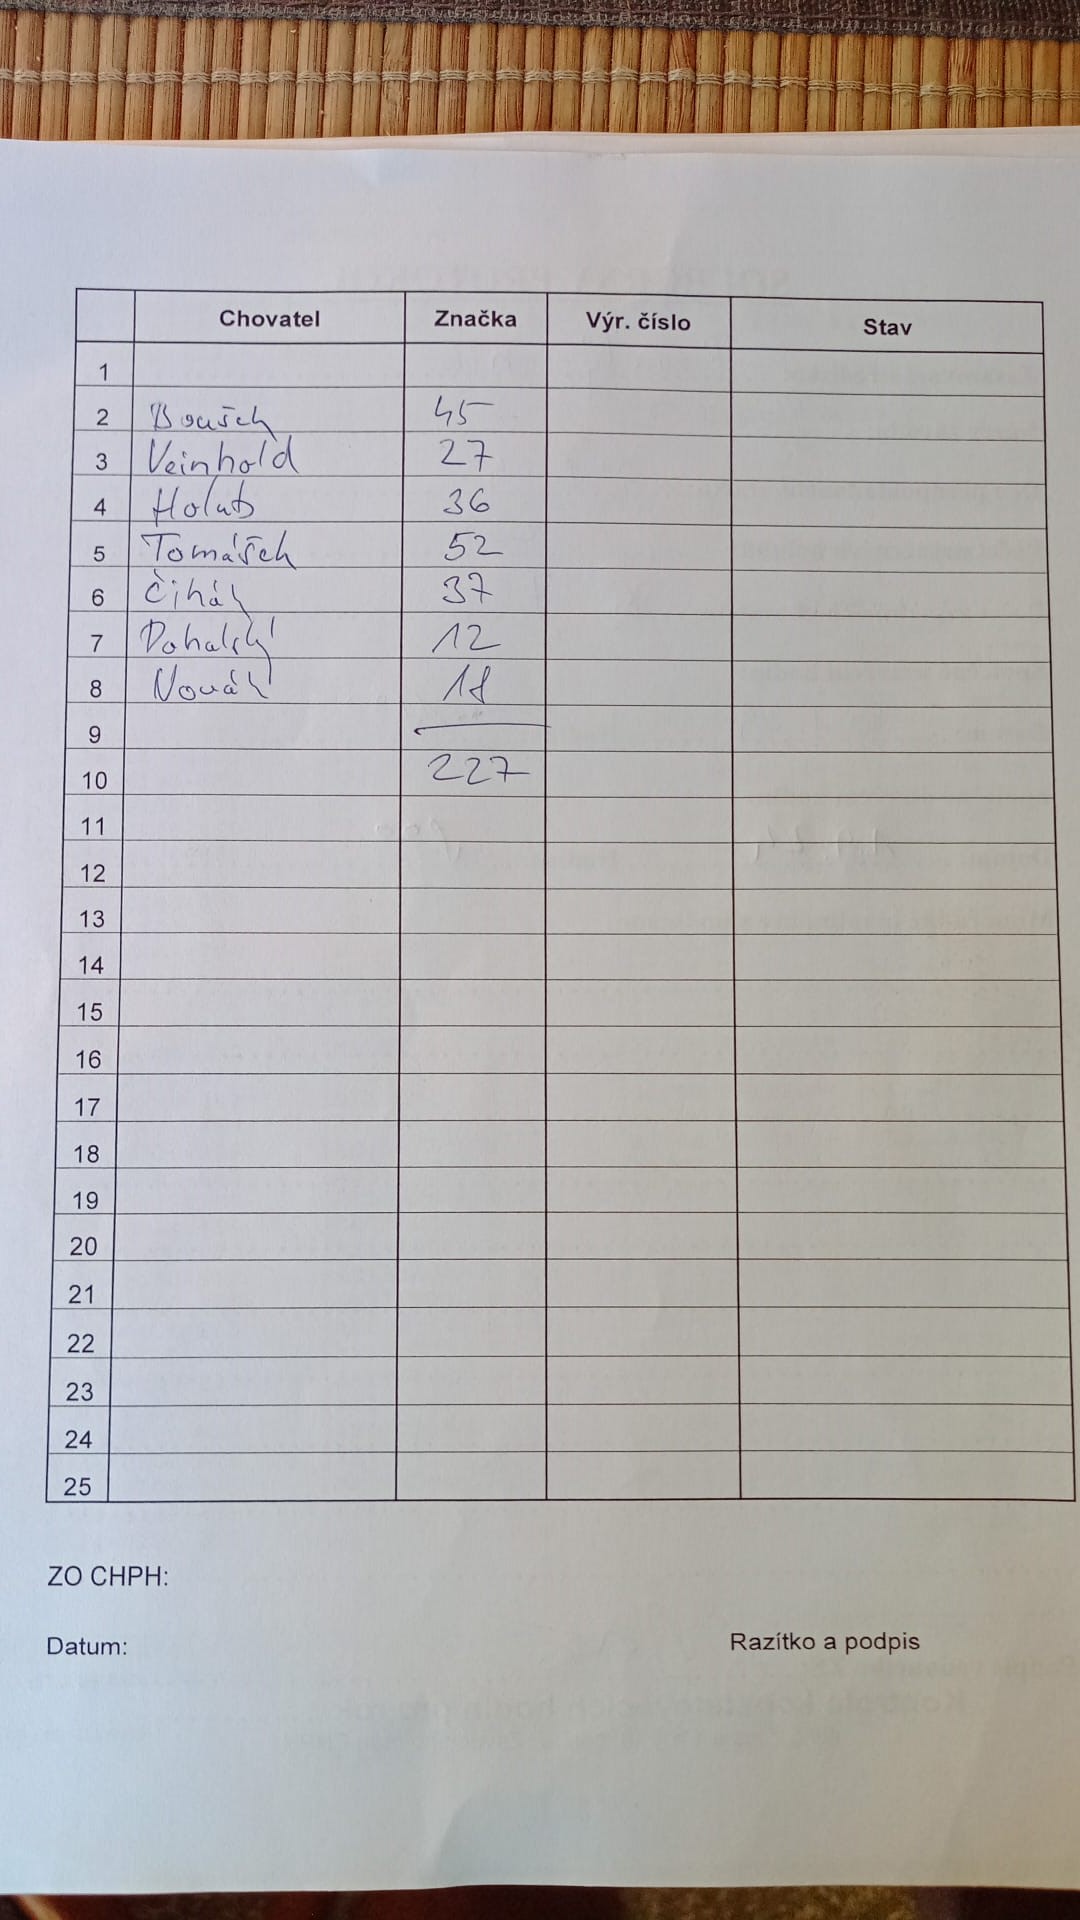 Chovatel Značka Výr. číslo Stav
1
2 Boušek 45
3 Veinhold 27
4 Holub 36
5 Tomášek 52
6 Čihák 37
7 Dohalský 12
8 Novák 18
9
10 227
11
12
13
14
15
16
17
18
19
20
21
22
23
24
25
ZO CHPH:
Datum: Razítko a podpis